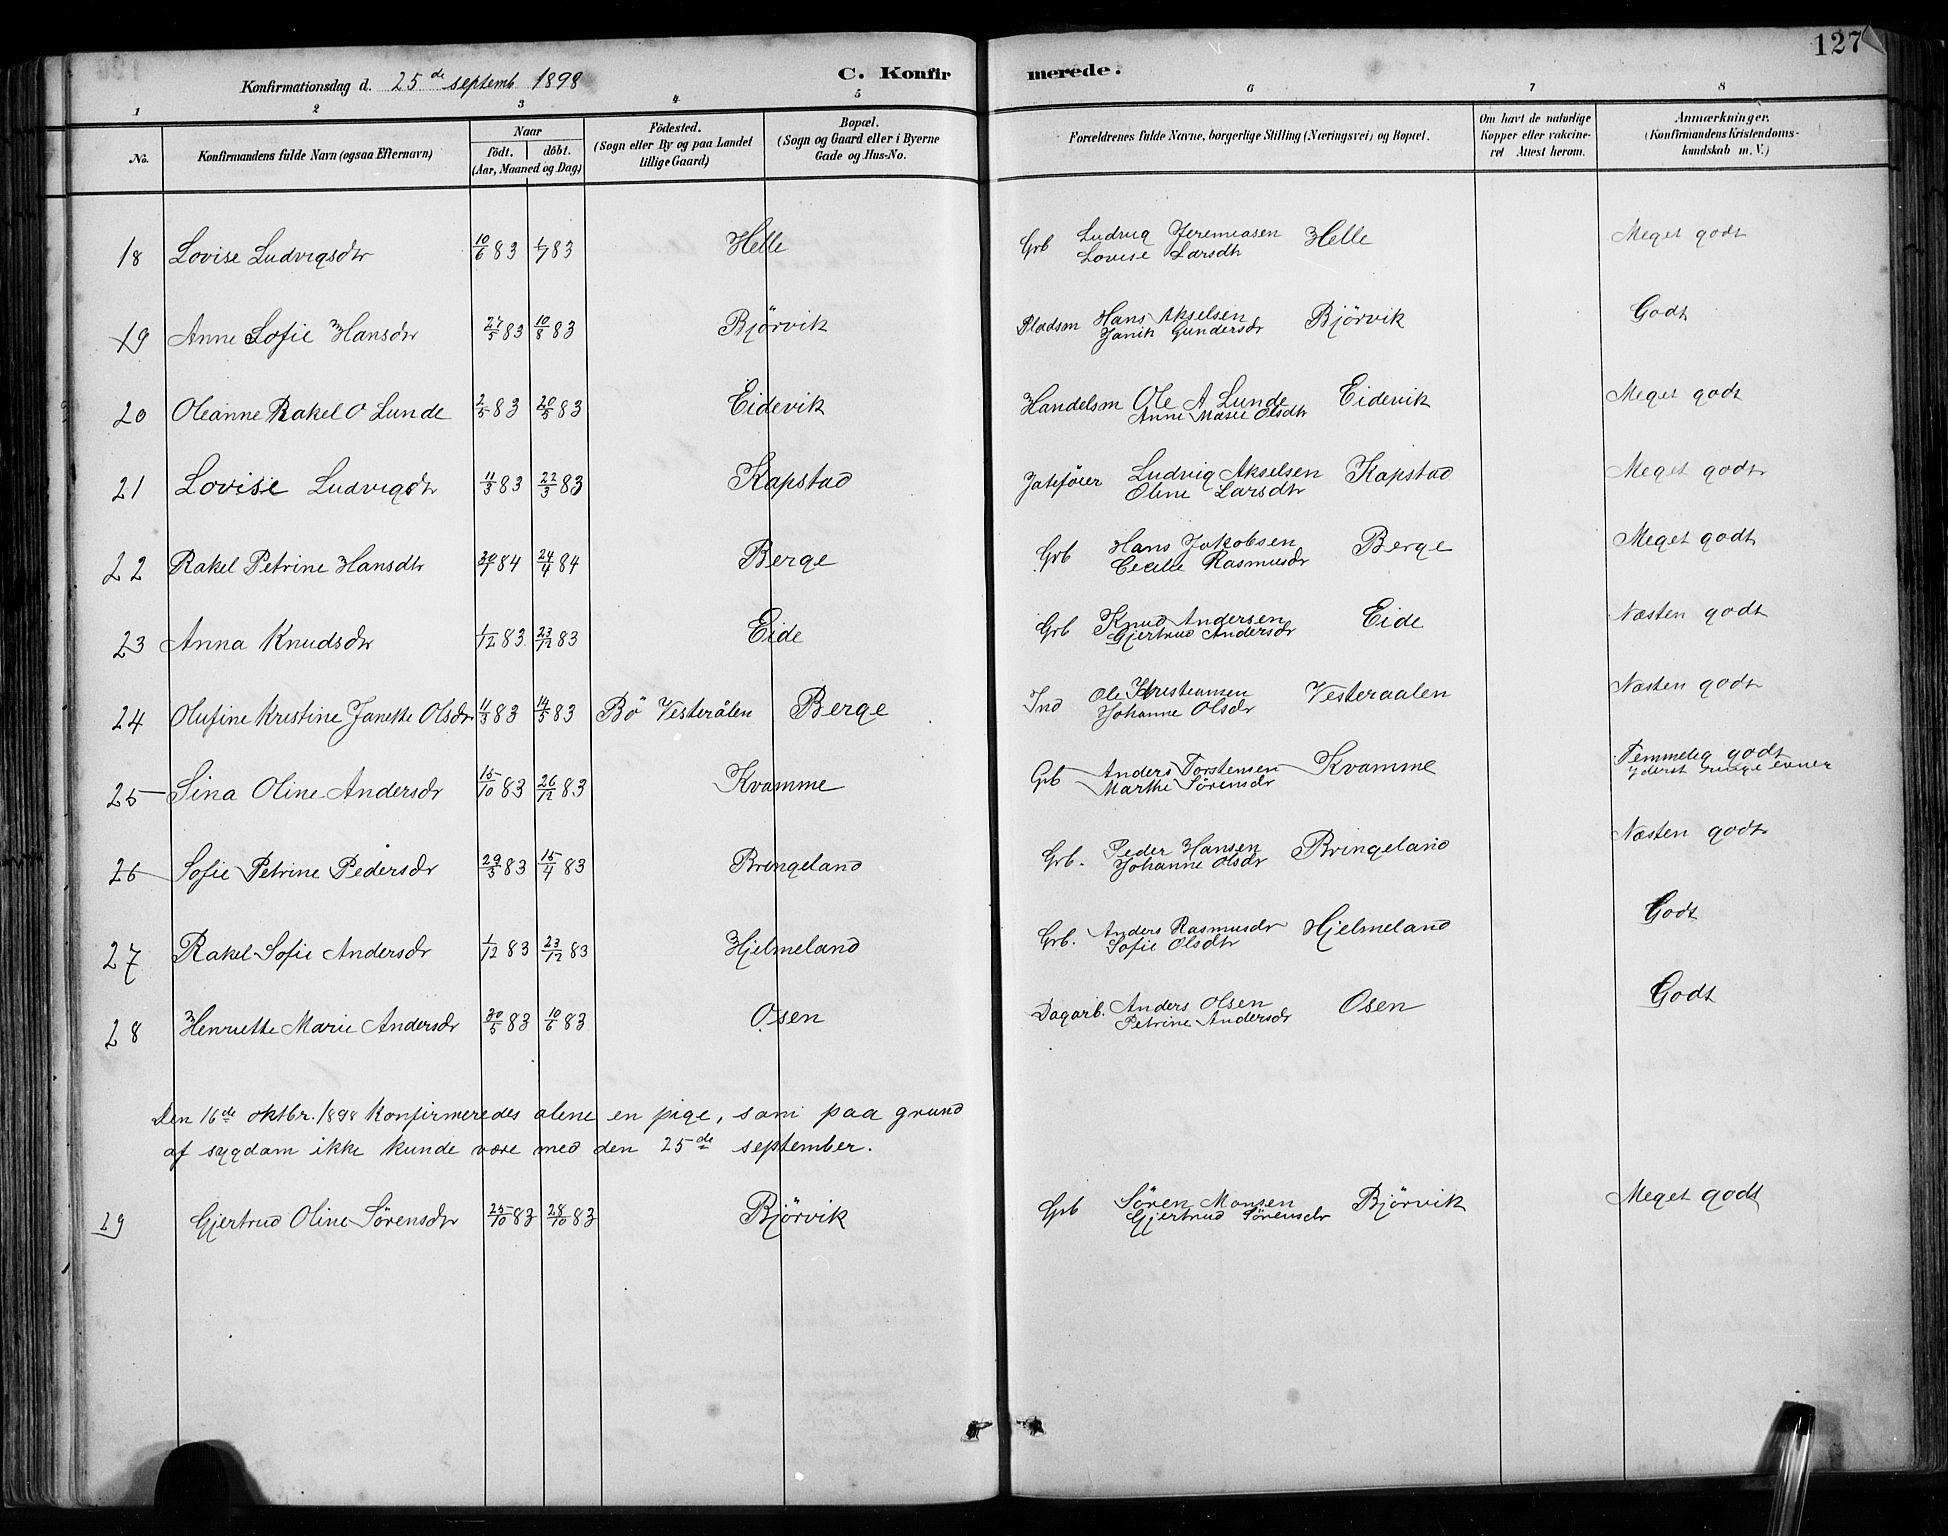 127
Konfirmationsdag d. 25de septemb 1898 C. Konfirmerede.
1 2 3 4 5 6 7 8
No. Konfirmandens fulde Navn (ogsaa Efternavn) Naar födt. döbt. (Aar, Maaned og Dag) Födested. (Sogn eller By og paa Landet tillige Gaard) Bopæl. (Sogn og Gaard eller i Byerne Gade og Hus-No.) Forældrenes fulde Navne, borgerlige Stilling (Næringsvei) og Bopæl. Om havt de naturlige Kopper eller vakcineret Attest herom. Anmærkninger. (Konfirmandens Kristendomskundskab m. V.)
18 Lovise Ludvigsdtr 10/6 83 1/7 83 Helle Grb Ludvig Jeremiasen Lovise Larsdtr Helle Meget godt
19 Anne Sofie Hansdtr 27/5 83 10/8 83 Bjørvik Pladsm Hans Akselsen Janik Gundersdr Bjørvik Godt
20 Oleanne Rakel O Lunde 2/5 83 20/5 83 Eidevik Handelsm Ole A Lunde Anne Marie Olsdtr Eidevik Meget godt
21 Lovise Ludvigsdtr 11/3 83 22/3 83 Kapstad Ludvig Akselsen Oline Larsdtr Kapstad Meget godt
22 Rakel Petrine Hansdtr 84 24/4 84 Berge Grb Hans Jakobsen Cecilie Rasmusdr Berge Meget godt
23 Anna Knudsdtr 1/12 83 23/12 83 Eide Grb Knud Andersen Gjertrud Andersdr Eide Næsten godt
24 Olufine Kristine Janette Olsdr 11/3 83 14/5 83 Bö Vesterålen Berge Ind Ole Kristiansen Johanne Olsdr Vesteraalen Næsten godt
25 Sina Oline Andersdr 15/10 83 26/12 83 Kvamme Grb Anders Torstensen Marthe Sörensdr Kvamme Temmelig godt yderst ringe evner
26 Sofie Petrine Pedersdr 29/3 83 15/4 83 Bringeland Grb. Peder Hansen Johanne Olsdr Bringeland Næsten godt
27 Rakel Sofie Andersdr 1/12 83 23/12 83 Hjelmeland Grb. Anders Rasmusdr Sofie Olsdtr Hjelmeland Godt
28 Henriette Marie Andersdr 30/5 83 10/6 83 Osen Dagarb. Anders Olsen Petrine Andersdr Osen Godt
Den 16de oktbr. 1898 Konfirmeredes alene en pige, som paa grund
af sygdom ikke kunde være med den 25de september.
29 Gjertrud Oline Sörensdtr 25/10 83 28/10 83 Bjørvik Grb Sören Monsen Gjertrud Sörensdr Bjørvik Meget godt